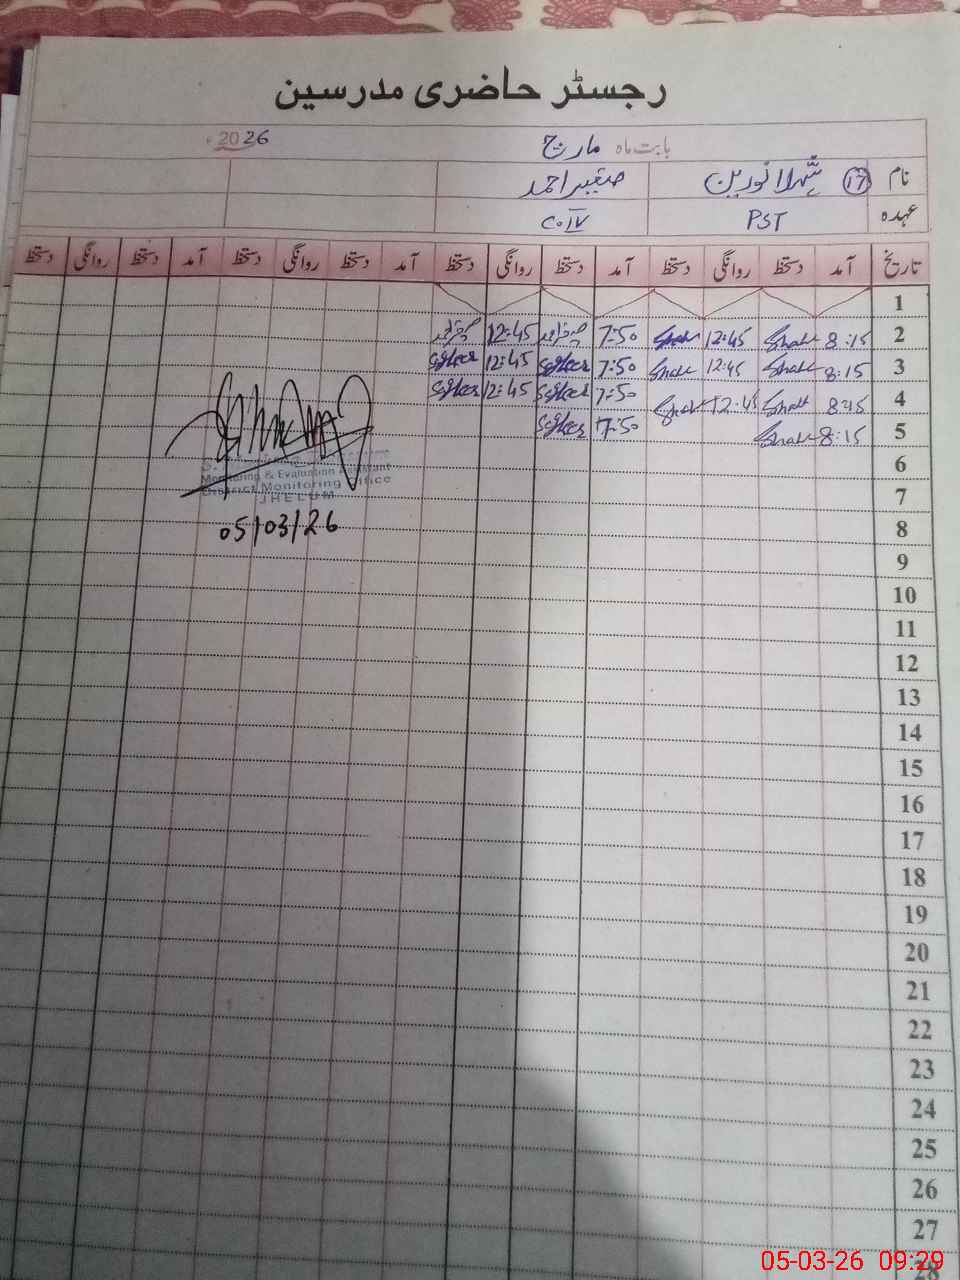 رجسٹر حاضری مدرسین
بابت ماہ مارچ 2026ء
نام ⑰ شہلا نورین صغیر احمد
عہدہ PST C.IV
تاریخ آمد دستخط روانگی دستخط آمد دستخط روانگی دستخط آمد دستخط روانگی دستخط آمد دستخط روانگی دستخط
1
2 8:15 12:45 7:50 12:45
3 8:15 12:45 7:50 Sgheer 12:45 Sgheer
4 8:15 12:45 7:50 Sgheer 12:45 Sgheer
5 8:15 7:50 Sgheer
6
Monitoring & Evaluation Assistant
District Monitoring Office
7
JHELUM
8
05/03/26
9
10
11
12
13
14
15
16
17
18
19
20
21
22
23
24
25
26
27
28
05-03-26 09:29